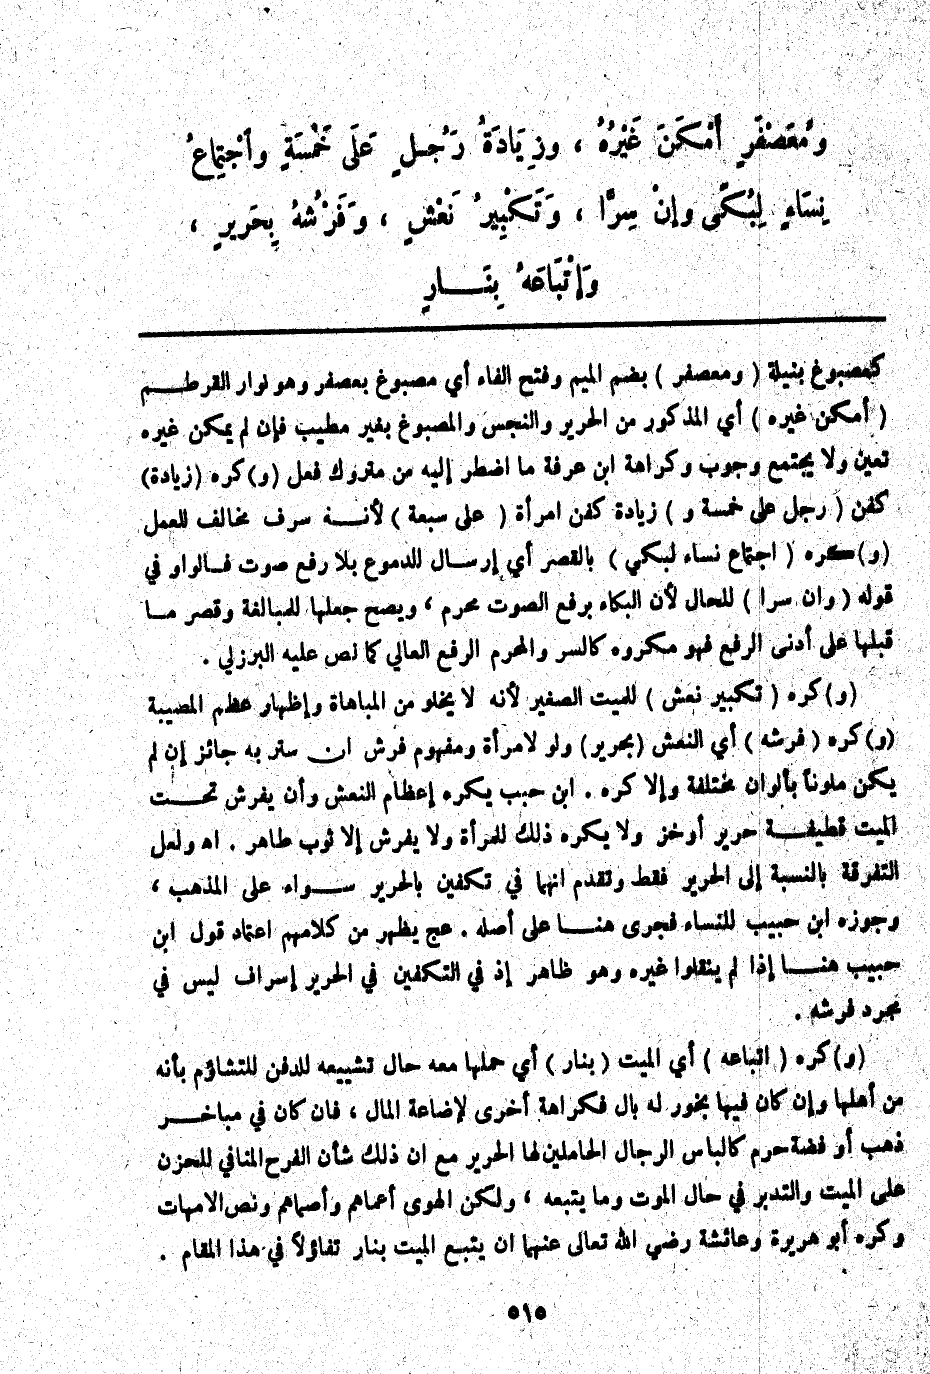 وَمُعَصْفَرٍ أَمْكَنَ غَيْرُهُ ، وزِيَادَةُ رَجُلٍ عَلَى خَمْسَةٍ وآجْتِمَاعُ
نِسَاءٍ لِبُكًى وإنْ سِرًّا ، وَتَكْبِيرُ نَعْشٍ ، وَفَرْشُهُ بِحَرِيرٍ ،
وَإتْبَاعُهُ بِنَـــارٍ
كمصبوغ بنيلة ( ومعصفر ) بضم الميم وفتح الفاء أي مصبوغ بعصفر وهو نوار القرطـــم
( أمكن غيره ) أي المذكور من الحرير والنجس والمصبوغ بغير مطيب فإن لم يمكن غيره
تعين ولا يجتمع وجوب وكراهة ابن عرفة ما اضطر إليه من متروك فعل (و) كره (زيادة)
كفن ( رجل على خمسة و ) زيادة كفن امرأة ( على سبعة ) لأنـــه سرف مخالف للعمل
(و) كره ( اجتماع نساء لبكي ) بالقصر أي إرســال للدموع بلا رفع صوت فــالواو في
قوله ( وان سرا ) للحال لأن البكاء برفع الصوت محرم ، ويصح جعلها للمبالغة وقصر مــا
قبلها على أدنى الرفع فهو مكروه كالسر والمحرم الرفع العالي كما نص عليه البرزلي .
(و) كره ( تكبير نعش ) للميت الصغير لأنه لا يخلو من المباهاة وإظهار عظم المصيبة
(و) كره ( فرشه ) أي النعش (بحرير) ولو لامرأة ومفهوم فرش ان ستر به جائز إن لم
يكن ملوناً بألوان مختلفة وإلا كره . ابن حبيب يكره إعظام النعش وأن يفرش تحـــت
الميت قطيفـــة حرير أوخز ولا يكره ذلك للمرأة ولا يفرش إلا ثوب طاهر . اه ولعل
التفرقة بالنسبة إلى الحرير فقط وتقدم انهما في تكفين بالحرير ســـواء على المذهب ،
وجوزه ابن حبيب للنساء فجرى هنـــا على أصله . عج يظهر من كلامهم اعتماد قول ابن
حبيب هنـــا إذا لم ينقلوا غيره وهو ظاهر إذ في التكفين في الحرير إسراف ليس في
مجرد فرشه .
(و) كره ( اتباعه ) أي الميت ( بنار ) أي حملها معه حال تشييعه للدفن للتشاؤم بأنه
من أهلها وإن كان فيها بخور له بال فكراهة أخرى لإضاعة المال ، فان كان في مباخـــر
ذهب أو فضة حرم كالباس الرجال الحاملين لها الحرير مع ان ذلك شأن الفرح المنافي للحزن
على الميت والتدبر في حال الموت وما يتبعه ، ولكن الهوى أعماهم وأصماهم ونص الامهات
وكره أبو هريرة وعائشة رضي الله تعالى عنهما ان يتبع الميت بنار تفاؤلاً في هذا المقام .
٥١٥